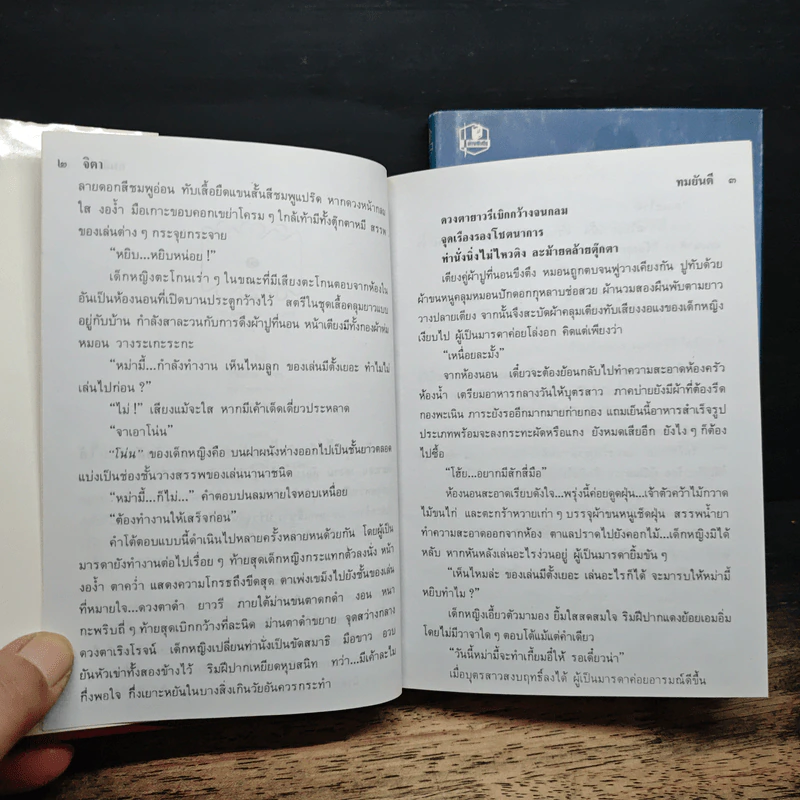 ๒ จิตา
ลายดอกสีชมพูอ่อน ทับเสื้อยืดแขนสั้นสีชมพูแปร๊ด หากดวงหน้ากลม
ใส งอง้ำ มือเกาะขอบคอกเขย่าโครม ๆ ใกล้เท้ามีทั้งตุ๊กตาหมี สรรพ
ของเล่นต่าง ๆ กระจุยกระจาย
“หยิบ...หยิบหน่อย !”
เด็กหญิงตะโกนเร่า ๆ ในขณะที่มีเสียงตะโกนตอบจากห้องใน
อันเป็นห้องนอนที่เปิดบานประตูกว้างไว้ สตรีในชุดเสื้อคลุมยาวแบบ
อยู่กับบ้าน กำลังสาละวนกับการดึงผ้าปูที่นอน หน้าเตียงมีทั้งกองผ้าห่ม
หมอน วางระเกะระกะ
“หม่ามี้...กำลังทำงาน เห็นไหมลูก ของเล่นมีตั้งเยอะ ทำไมไม่
เล่นไปก่อน ?”
“ไม่ !” เสียงแม้จะใส หากมีเค้าเด็ดเดี่ยวประหลาด
“จาเอาโน่น”
“โน่น” ของเด็กหญิงคือ บนฝาผนังห่างออกไปเป็นชั้นยาวตลอด
แบ่งเป็นช่องชั้นวางสรรพของเล่นนานาชนิด
“หม่ามี้...ก็ไม่...” คำตอบปนลมหายใจหอบเหนื่อย
“ต้องทำงานให้เสร็จก่อน”
คำโต้ตอบแบบนี้ดำเนินไปหลายครั้งหลายหนด้วยกัน โดยผู้เป็น
มารดายังทำงานต่อไปเรื่อย ๆ ท้ายสุดเด็กหญิงกระแทกตัวลงนั่ง หน้า
งอง้ำ ตาคว่ำ แสดงความโกรธถึงขีดสุด ตาเพ่งเขม็งไปยังชั้นของเล่น
ที่หมายใจ...ดวงตาดำ ยาวรี ภายใต้ม่านขนตาดกดำ งอน หนา
กะพริบถี่ ๆ ท้ายสุดเบิกกว้างทีละนิด ม่านตาดำขยาย จุดสว่างกลาง
ดวงตาเริงโรจน์ เด็กหญิงเปลี่ยนท่านั่งเป็นขัดสมาธิ มือขาว อวบ
ยันหัวเข่าทั้งสองข้างไว้ ริมฝีปากเหยียดหุบสนิท ทว่า...มีเค้าละไม
กึ่งพอใจ กึ่งเยาะหยันในบางสิ่งเกินวัยอันควรกระทำ
ทมยันตี ๓
ดวงตายาวรีเบิกกว้างจนกลม
จุดเรืองรองโชตนาการ
ท่านั่งนิ่งไม่ไหวติง ละม้ายคล้ายตุ๊กตา
เตียงคู่ผ้าปูที่นอนขึงตึง หมอนถูกตบจนฟูวางเคียงกัน ปูทับด้วย
ผ้าขนหนูคลุมหมอนปักดอกกุหลาบช่อสวย ผ้านวมสองผืนพับตามยาว
วางปลายเตียง จากนั้นจึงสะบัดผ้าคลุมเตียงทับเสียงงอแงของเด็กหญิง
เงียบไป ผู้เป็นมารดาค่อยโล่งอก คิดแต่เพียงว่า
“เหนื่อยละมั้ง”
จากห้องนอน เดี๋ยวจะต้องย้อนกลับไปทำความสะอาดห้องครัว
ห้องน้ำ เตรียมอาหารกลางวันให้บุตรสาว ภาคบ่ายยังมีผ้าที่ต้องรีด
กองพะเนิน ภาระยังรออีกมากมายก่ายกอง แถมเย็นนี้อาหารสำเร็จรูป
ประเภทพร้อมจะลงกระทะผัดหรือแกง ยังหมดเสียอีก ยังไง ๆ ก็ต้อง
ไปซื้อ
“โฮ้ย...อยากมีสักสี่มือ”
ห้องนอนสะอาดเรียบดังใจ...พรุ่งนี้ค่อยดูดฝุ่น...เจ้าตัวคว้าไม้กวาด
ไม้ขนไก่ และตะกร้าหวายเก่า ๆ บรรจุผ้าขนหนูเช็ดฝุ่น สรรพน้ำยา
ทำความสะอาดออกจากห้อง ตาแลปราดไปยังคอกไม้...เด็กหญิงมิได้
หลับ หากหันหลังเล่นอะไรง่วนอยู่ ผู้เป็นมารดายิ้มขัน ๆ
“เห็นไหมล่ะ ของเล่นมีตั้งเยอะ เล่นอะไรก็ได้ จะมารบให้หม่ามี้
หยิบทำไม ?”
เด็กหญิงเอี้ยวตัวมามอง ยิ้มใสสดสมใจ ริมฝีปากแดงย้อยเอมอิ่ม
โดยไม่มีวาจาใด ๆ ตอบโต้แม้แต่คำเดียว
“วันนี้หม่ามี้จะทำเกี้ยมอี๋ให้ รอเดี๋ยวน่า”
เมื่อบุตรสาวสงบฤทธิ์ลงได้ ผู้เป็นมารดาค่อยอารมณ์ดีขึ้น